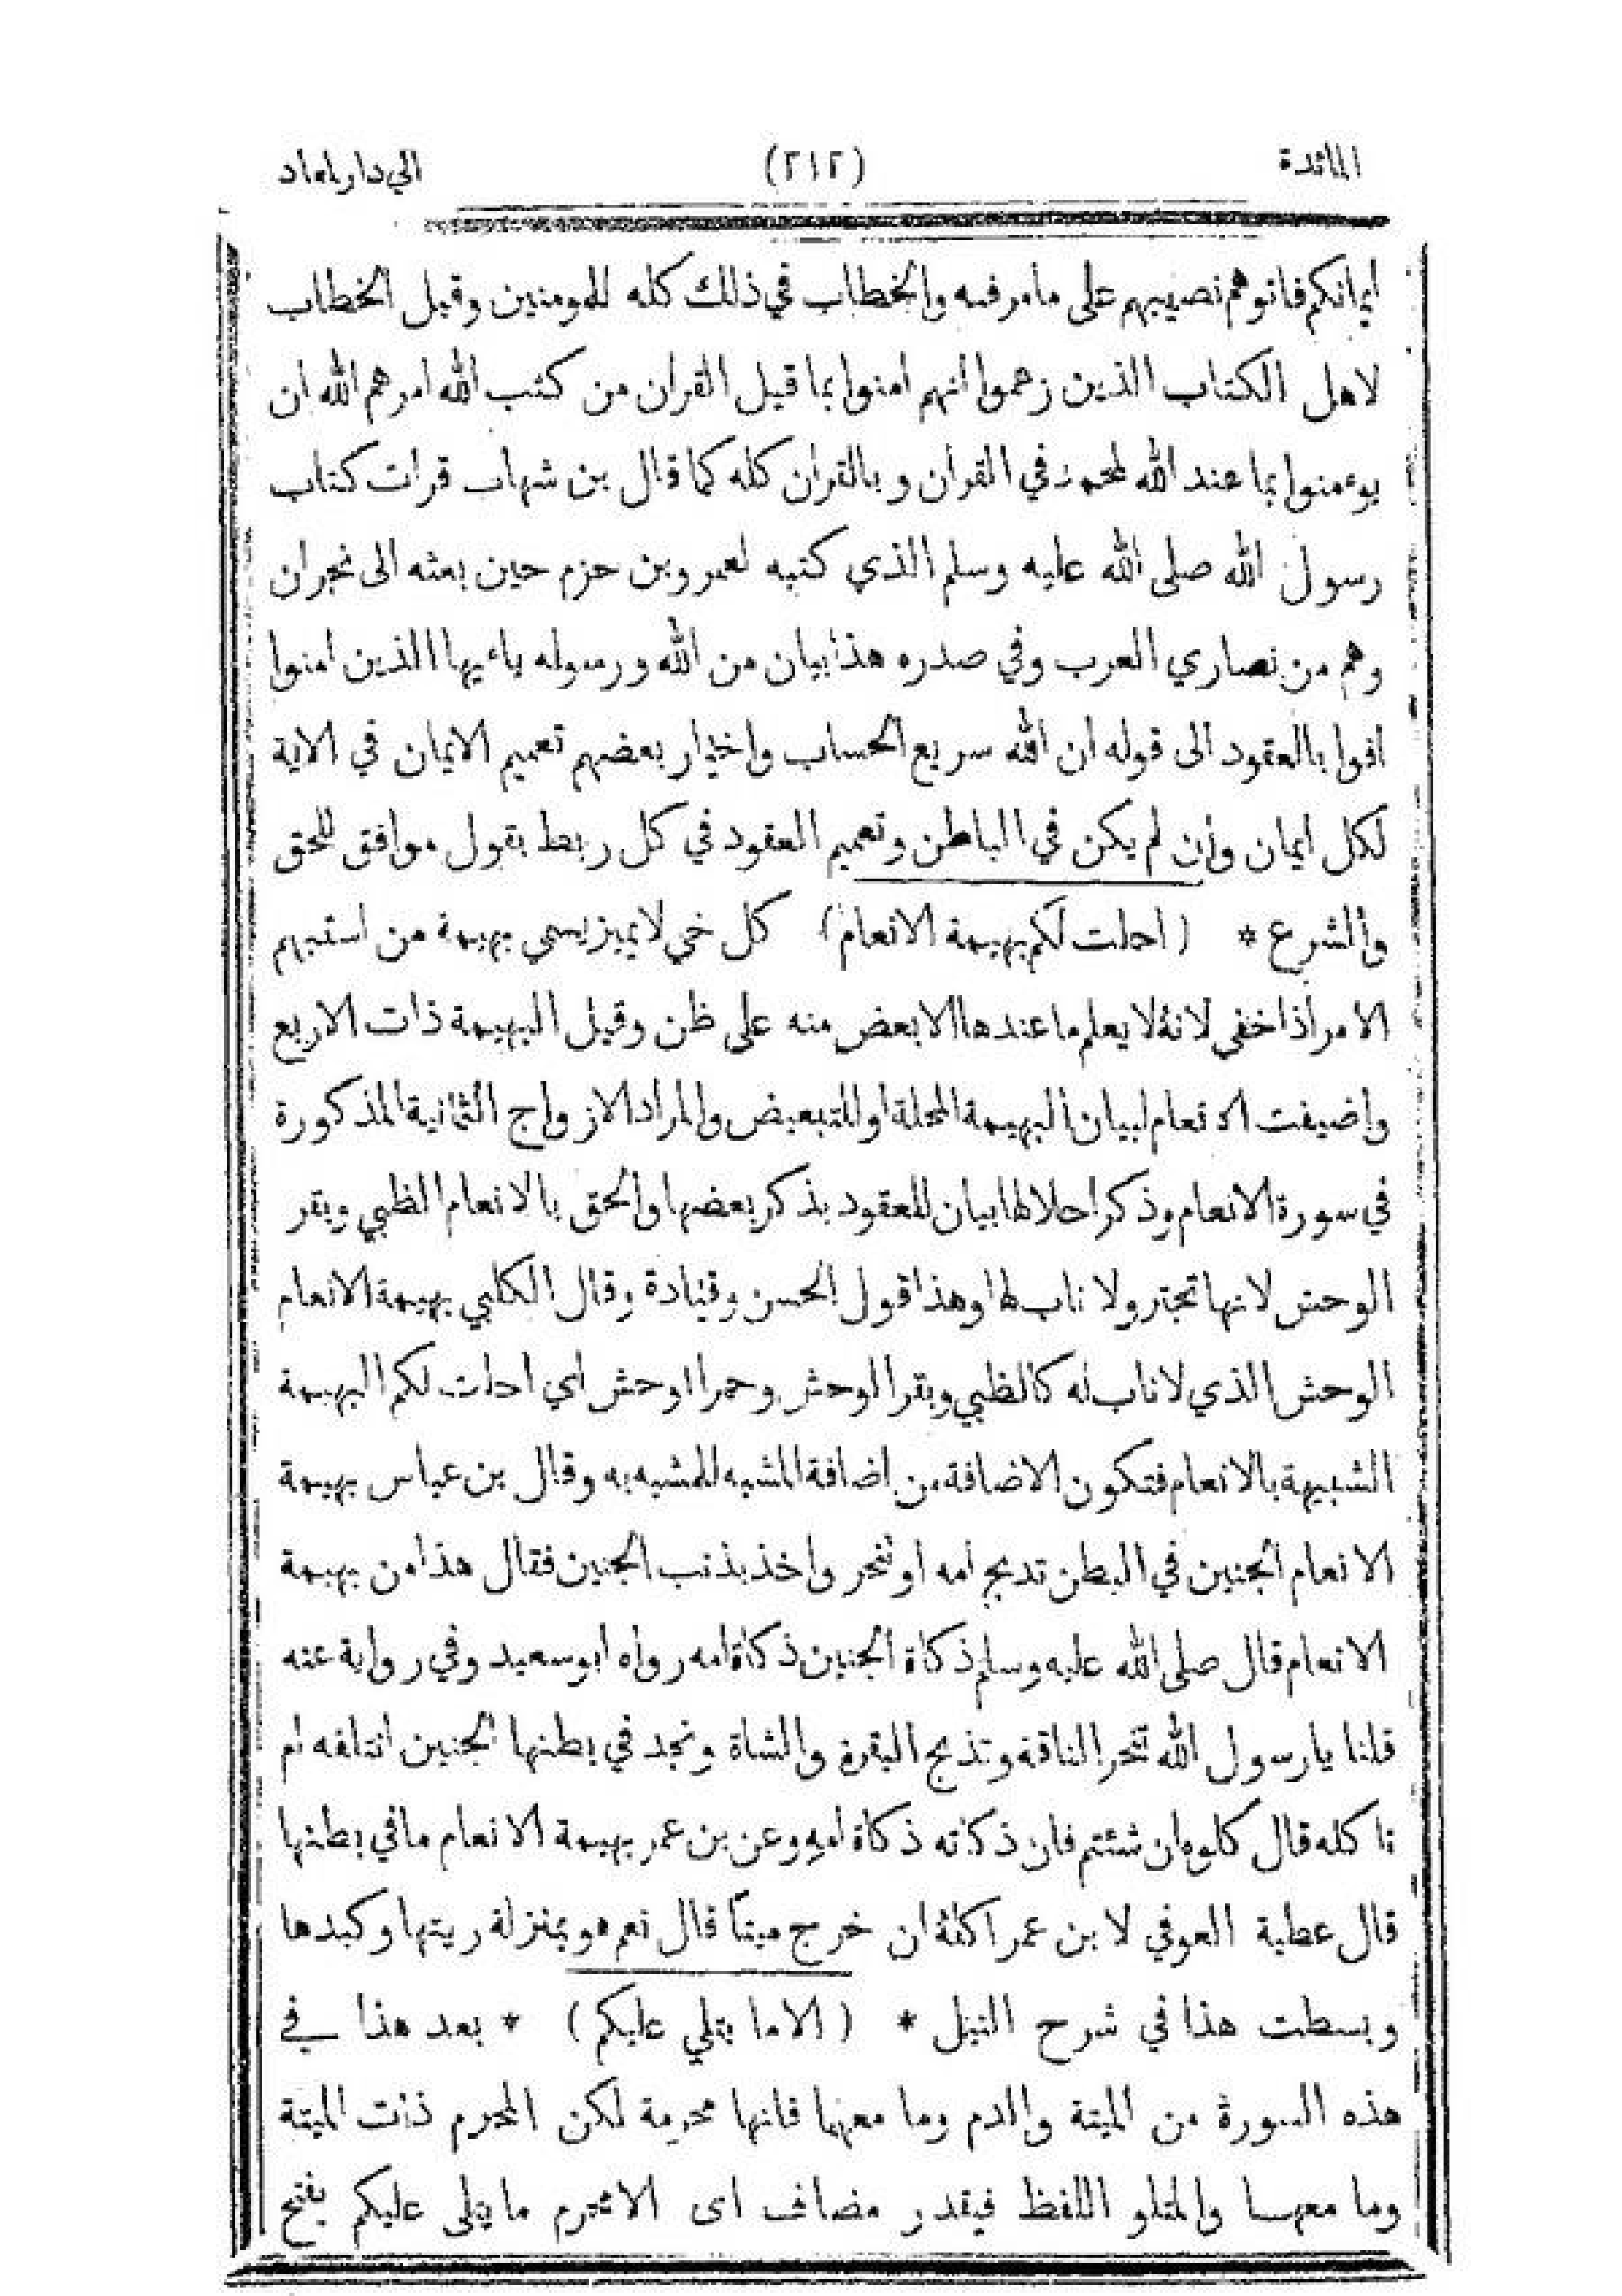 المائدة (٢١٢) الي دار لمعاد
ايمانكم فاتوهم نصيبهم على مامر فيه والخطاب في ذلك كله للمومنين وقيل الخطاب
لاهل الكتاب الذين زعموا انهم امنوا بما قبل القران من كتب الله امرهم الله ان
يوءمنوا بما عند الله لمحمد في القران وبالقران كله كما قال بن شهاب قرات كتاب
رسول الله صلى الله عليه وسلم الذي كتبه لعمر وبن حزم حين بعثه الى نجران
وهم من نصاري العرب وفي صدره هذا بيان من الله ورسوله ياءيها الذين امنوا
افوا بالعقود الى قوله ان الله سريع الحساب واختار بعضهم تعميم الايمان في الاية
لكل ايمان وان لم يكن في الباطن وتعميم العقود في كل ربط بقول موافق للحق
والشرع * ( احلت لكم بهيمة الانعام ) كل حي لايميز يسمى بهيمة من استبهم
الامر اذا خفى لانه لا يعلم ما عندها الابعض منه على ظن وقيل البهيمة ذات الاربع
واضيفت الانعام لبيان البهيمة المحلة او للتبعيض والمراد الازواج الثمانية المذكورة
في سورة الانعام وذكر احلالها بيان للعقود بذكر بعضها والحق بالانعام الظبي وبقر
الوحش لانها تجتر ولا ناب لها وهذا قول الحسن وقتادة وقال الكلبي بهيمة الانعام
الوحش الذي لاناب له كالظبي وبقر الوحش وحمر الوحش اي احلت لكم البهيمة
الشبيهة بالانعام فتكون الاضافة من اضافة المشبه للمشبه به وقال بن عباس بهيمة
الانعام الجنين في البطن تدبح امه او تنحر واخذ بذنب الجنين فقال هذا من بهيمة
الانعام قال صلى الله عليه وسلم ذكاة الجنين ذكاة امه رواه ابو سعيد وفي رواية عنه
قلنا يارسول الله ننحر الناقة ونذبح البقرة والشاة ونجد في بطنها الجنين انلقه ام
ناكله قال كلوه ان شئتم فان ذكاته ذكاة امه وعن بن عمر بهيمة الانعام مافي بطنها
قال عطية العوفي لا بن عمر اكله ان خرج ميتا قال نعم هو بمنزلة ريتها وكبدها
وبسطت هذا في شرح النيل * ( الاما يتلي عليكم ) * بعد هذا في
هذه السورة من الميتة والدم وما معهما فانها محرمة لكن المحرم ذات الميتة
وما معهما والمتلو اللفظ فيقدر مضاف اى الامحرم ما يتلى عليكم بفتح